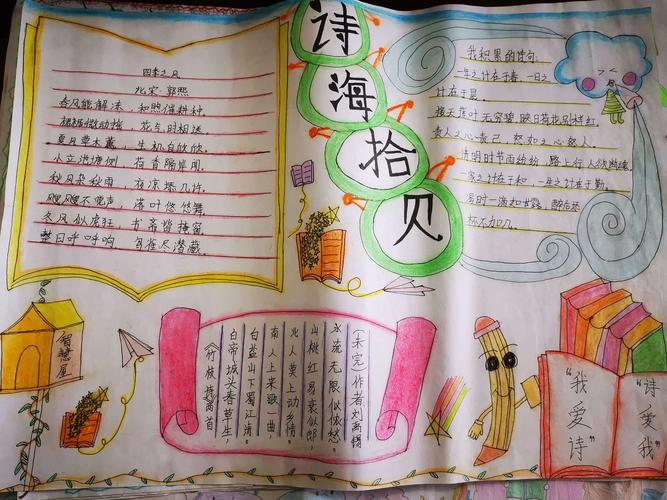 诗海拾贝
四季之风
北宋·郭熙
春风能解冻，和煦催耕种。
裙裾微动摇，花气时相送
夏风草木薰，生机自欣欣。
人立池塘侧 荷香隔岸闻。
秋风杂秋雨，衣凉添几许。
飕飕不绝声，落叶悠悠舞
冬风似虎狂，书斋皆掩窗
整日呼呼响 鸟雀尽潜藏。
我积累的诗句
一年之计在于春，一日之
计在于晨。
接天莲叶无穷碧 映日荷花别样红。
责人之心责己，恕如之心恕人。
清明时节雨纷纷，路上行人欲断魂
一家之计在于和，一生之计在于勤。
渴时一滴如甘露，醉后添
杯不如几。
智慧屋
《竹枝词两首
白帝城头春草生，
白盐山下蜀江清。
南人上来歌一曲，
北人莫上动乡情。
山桃红易衰似郎，
水流无限似侬愁。
（未完）作者刘禹锡
“我爱诗”
“诗爱我”